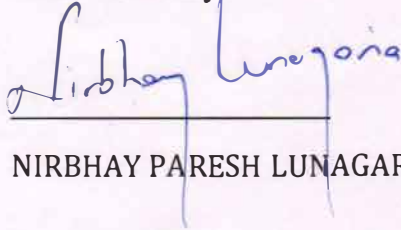 Nirbhay Lunagaria
NIRBHAY PARESH LUNAGAR